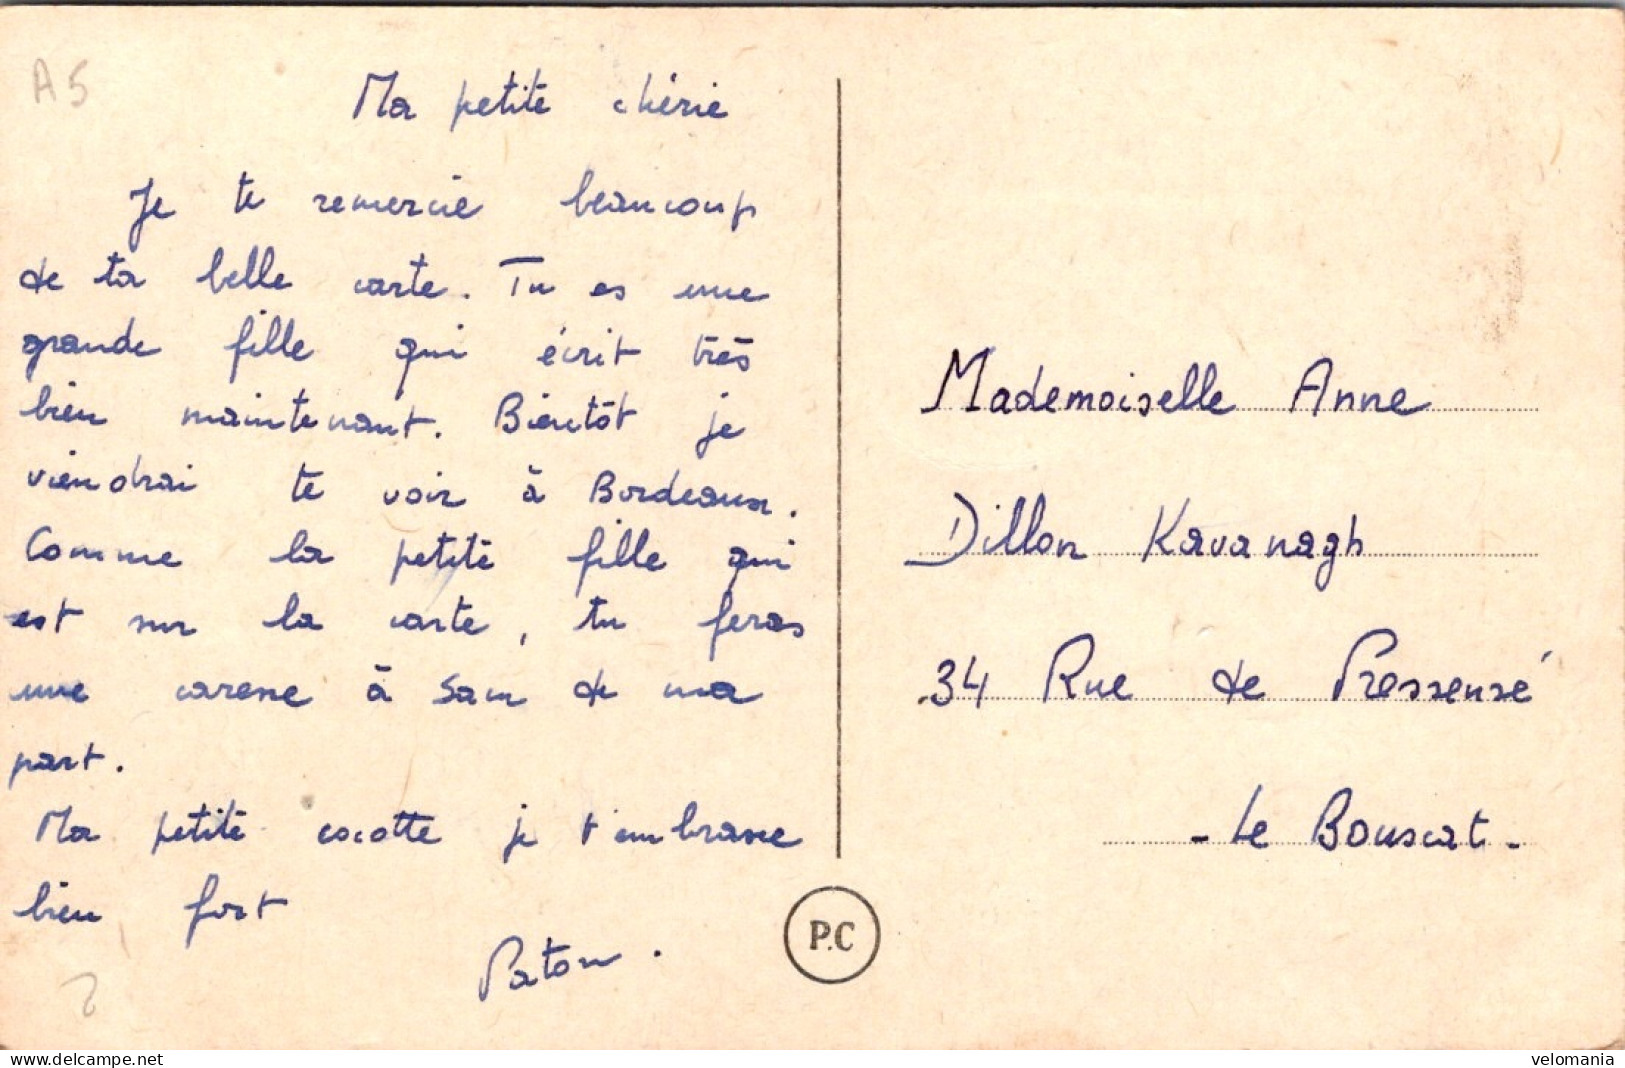 A5
Ma petite chérie
Je te remercie beaucoup
de ta belle carte. Tu es une
grande fille qui écrit très
bien maintenant. Bientôt je
viendrai te voir à Bordeaux.
Comme la petite fille qui
est sur la carte, tu feras
une caresse à Sam de ma
part.
Ma petite cocotte je t'embrasse
bien fort
Paton.
Mademoiselle Anne
Dillon Kavanagh
34 Rue de Pressensé
- Le Bouscat -
P.C
www.delcampe.net
velomania